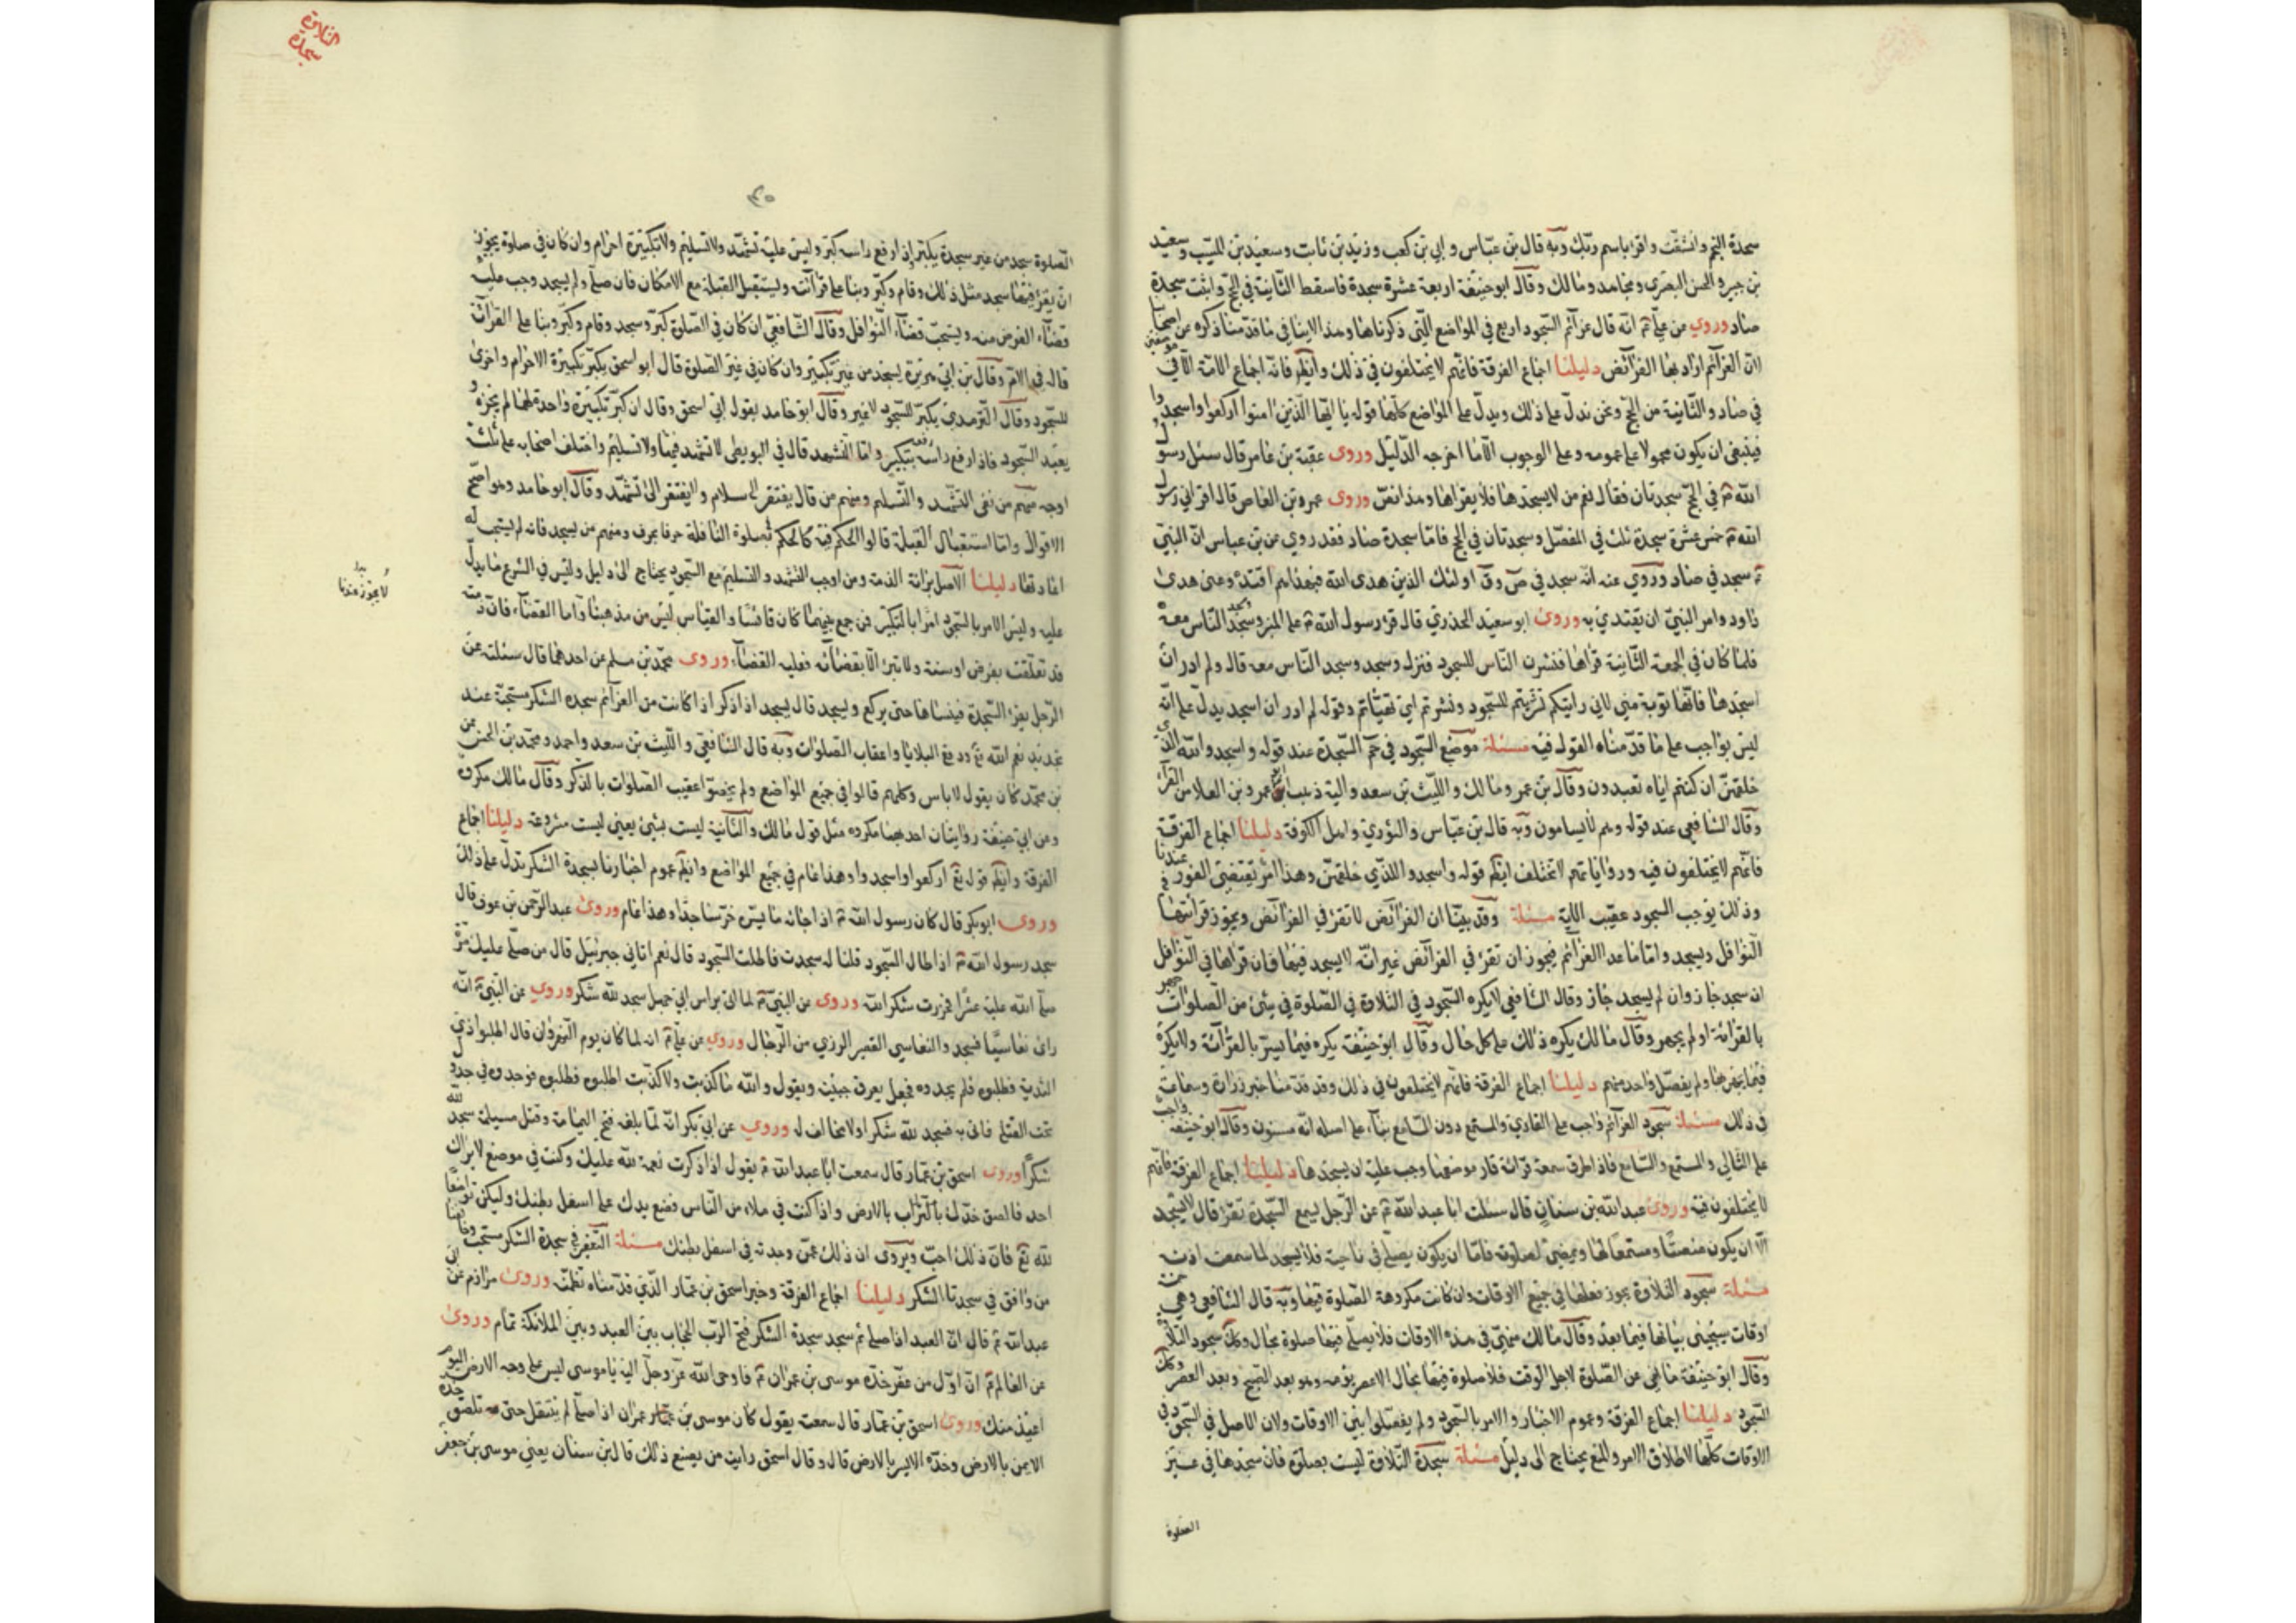 سجدة النجم وانشقت واقرا باسم ربك وبه قال بن عباس وابي بن كعب وزيد بن ثابت وسعيد بن المسيب وسعيد
بن جبير والحسن البصري ومجاهد ومالك وقال ابو حنيفة اربعة عشرة سجدة فاسقط الثانية في الحج واثبت سجدة
صاد وروي عن علي ؏ انه قال عزائم السجود اربع في المواضع التي ذكرناها وهذا لاينافي ما قدمنا ذكره عن اصحابنا
لان العزائم اراد بها الفرائض دليلنا اجماع الفرقة فانهم لايختلفون في ذلك وايضا فانه اجماع الامة الا في
في صاد والثانية من الحج ونحن ندل على ذلك ويدل على المواضع كلها قوله يا ايها الذين امنوا اركعوا واسجدوا
فينبغي ان يكون محمولا على عمومه وعلى الوجوب الا ما اخرجه الدليل وروى عقبة بن عامر قال سئل رسول
الله ؐ في الحج سجدتان فقال نعم من لايسجدها فلا يقراها وهذا نص وروى عمرو بن العاص قال اقراني رسول
الله ؐ خمس عشرة سجدة ثلث في المفصل وسجدتان في الحج فاما سجدة صاد فقد روي عن بن عباس ان النبي
ؐ سجد في صاد وروي عنه انه سجد في ص وقرا اولئك الذين هدى الله فبهديهم اقتده وعنى هدى
داود وامر النبي ان يقتدي به وروى ابو سعيد الخدري قال قرا رسول الله ؐ على المنبر وسجد الناس معه
فلما كان في الجمعة الثانية قراها فتشرن الناس للسجود فنزل وسجد وسجد الناس معه قال ولم ارد ان
اسجدها فانها توبة نبي لاني رايتكم تشرنتم للسجود وتشرنتم اي تهيئاتم وقوله لم ارد ان اسجد يدل على انه
ليس بواجب على ما قدمناه القول فيه مسئلة موضع السجود في حم السجدة عند قوله واسجدوا لله الذي
خلقهن ان كنتم اياه تعبدون وقال بن عمر ومالك والليث بن سعد واليه ذهب ابو عمرو بن العلا من القراء
وقال الشافعي عند قوله وهم لايسامون وبه قال بن عباس والثوري واهل الكوفة دليلنا اجماع الفرقة
فانهم لايختلفون فيه ورواياتهم لاتختلف ايضا قوله واسجدوا للذي خلقهن وهذا امر يقتضي الفور عندنا
وذلك يوجب السجود عقيب الاية مسئلة وقد بينا ان الفرائض لاتقرا في الفرائض ويجوز قرائتها في
النوافل ويسجد واما ما عدا العزائم فيجوز ان تقرا في الفرائض غير انه لايسجد فيها فان قراها في النوافل
ان سجد جاز وان لم يسجد جاز وقال الشافعي لايكره السجود في التلاوة في الصلوة في شئ من الصلوات جهر
بالقرائة او لم يجهر وقال مالك يكره ذلك على كل حال وقال ابو حنيفة يكره فيما يسر بالقرائة ولايكره
فيما يجهر بها ولم يفصل واحد منهم دليلنا اجماع الفرقة فانهم لايختلفون في ذلك وقد قدمنا خبر زرارة وسماعة
في ذلك مسئلة سجود العزائم واجب على القاري والمستمع دون السامع بناء على اصله انه مسنون وقال ابو حنيفة واجب
على التالي والمستمع والسامع فاذا طرق سمعه قرائة قار موضعها وجب عليه ان يسجدها دليلنا اجماع الفرقة فانهم
لايختلفون فيه وروى عبدالله بن سنان قال سئلت ابا عبدالله ؏ عن الرجل يسمع السجدة تقرا قال لايسجد
الا ان يكون منصتا ومستمعا لها ويصلي لصلوته فاما ان يكون يصلي في ناحية فلا يسجد لما سمعت اذن
مسئلة سجود التلاوة يجوز فعلها في جميع الاوقات وان كانت مكروهة الصلوة فيها وبه قال الشافعي وهي خمسة
اوقات سيجئ بيانها فيما بعد وقال مالك متى في هذه الاوقات فلا يصلي فيها صلوة بحال ولا سجود التلاوة
وقال ابو حنيفة ما نهي عن الصلوة لاجل الوقت فلا صلوة فيها بحال الا عصر يومه وهو بعد الصبح وبعد العصر وكان
السجود دليلنا اجماع الفرقة وعموم الاخبار والامر بالسجود ولم يفصلوا بين الاوقات ولان الاصل في السجود في
الاوقات كلها لاطلاق الامر والمنع يحتاج الى دليل مسئلة سجدة التلاوة ليست بصلوة فان سجدها في غير
الصلوة
التلاوة
سجدة
الصلوة سجد من غير سجدة يكبر اذا رفع راسه كبر وليس عليه تشهد ولا تسليم ولا تكبيرة احرام وان كان في صلوة يجوز
ان يقرا فيها سجد مثل ذلك وقام وكبر وبنا على قرائته وليستقبل القبلة مع الامكان فان صلى ولم يسجد وجب عليه
قضاء الفرض منه ويستحب قضاء النوافل وقال الشافعي ان كان في الصلوة كبر وسجد وقام وكبر وبنا على القرائة
قاله في الام وقال بن ابي هريرة يسجد من غير تكبير وان كان في غير الصلوة قال ابو اسحق يكبر تكبيرة الاحرام واخرى
للسجود وقال الترمدي يكبر للسجود لاغير وقال ابو حامد بقول ابي اسحق وقال ان كبر تكبيرة واحدة لهما لم يجزه و
يعيد السجود فاذا رفع راسه رفعه بتكبير واما التشهد قال في البويطي لاتشهد فيها ولا تسليم واختلف اصحابه على ثلثة
اوجه منهم من نفى التشهد والتسليم ومنهم من قال يفتقر الى سلام ولايفتقر الى تشهد وقال ابو حامد وهو اصح
الاقوال واما استقبال القبلة قالوا الحكم فيه كالحكم في صلوة النافلة حرفا بحرف ومنهم من يسجد فانه لم يستحب له
اعادتها دليلنا الاصل برائة الذمة ومن اوجب التشهد والتسليم مع السجود يحتاج الى دليل وليس في الشرع ما يدل
لايجوز عندنا
عليه وليس الامر بالسجود امرا بالتكبير فمن جمع بينهما كان قائسا والقياس ليس من مذهبنا واما القضاء فان ذمته
قد تعلقت بفرض او سنة ولا تبرئ الا بقضائه فعليه القضاء وروى محمد بن مسلم عن احدهما قال سئلته عن
الرجل يقرا السجدة فينساها حتى يركع ويسجد قال يسجد اذا ذكر اذا كانت من العزائم سجدة الشكر مستحبة عند
تجديد نعم الله تع ودفع البلايا واعقاب الصلوات وبه قال الشافعي والليث بن سعد واحمد ومحمد بن الحسن عن
بن محمد كان يقول لاباس وكلهم قالوا في جميع المواضع ولم يخصوا عقيب الصلوات بالذكر وقال مالك مكروه
وعن ابي حنيفة روايتان احديهما مكروه مثل قول مالك والثانية ليست بشئ يعني ليست مشروعة دليلنا اجماع
الفرقة وايضا قوله تع اركعوا واسجدوا وهذا عام في جميع المواضع وايضا عموم اخبارنا بسجدة الشكر تدل على ذلك
وروى ابو بكر قال كان رسول الله ؐ اذا جائه ما يسره خر ساجدا وهذا عام وروى عبدالرحمن بن عوف قال
سجد رسول الله ؐ اذا طال السجود قلنا له سجدت فاطلت السجود قال نعم اتاني جبرئيل قال من صلى عليك مرة
صلى الله عليه عشرا فخررت شكرا لله وروى عن النبي ؐ لما اتى براس ابي جهل سجد لله شكرا وروي عن النبي ؐ انه
رائ نغاشيا فسجد والنغاشي القصير الزري من الرجال وروي عن علي ؏ انه لما كان يوم النهروان قال اطلبوا ذي
الثدية فطلبوه فلم يجدوه فجعل يعرق جبينه ويقول والله ما كذبت ولا كذبت اطلبوه فطلبوه فوجدوه في جدول
تحت القتلى فاتي به فسجد لله شكرا ولا مخالف له وروي عن ابي بكر انه لما بلغه فتح اليمامة وقتل مسيلمة سجد لله
شكرا وروى اسحق بن عمار قال سمعت ابا عبدالله ؏ يقول اذا ذكرت نعمة الله عليك وكنت في موضع لايراك
احد فالصق خدك بالتراب بالارض واذا كنت في ملاء من الناس فضع يدك على اسفل بطنك وليكن تواضعا
لله تع فان ذلك احب ويروى ان ذلك غمز وجدته في اسفل بطنك مسئلة التعفير في سجدة الشكر مستحب
من وافق في سجدتا الشكر دليلنا اجماع الفرقة وخبر اسحق بن عمار الذي قدمناه تضمنه وروى مرازم عن ابي
عبدالله ؏ قال ان العبد اذا صلى ثم سجد سجدة الشكر فتح الرب الحجاب بين العبد وبين الملائكة تمام وروى
عن العالم ؏ ان اول من عفر خده موسى بن عمران ؏ فاوحى الله عز وجل اليه ياموسى ليس على وجه الارض اليوم
اعبد منك وروى اسحق بن عمار قال سمعته يقول كان موسى بن عمران اذا صلى لم ينتقل حتى يلصق خده
الايمن بالارض وخده الايسر بالارض قال وقال اسحق رايت من يصنع ذلك قال بن سنان يعني موسى بن جعفر